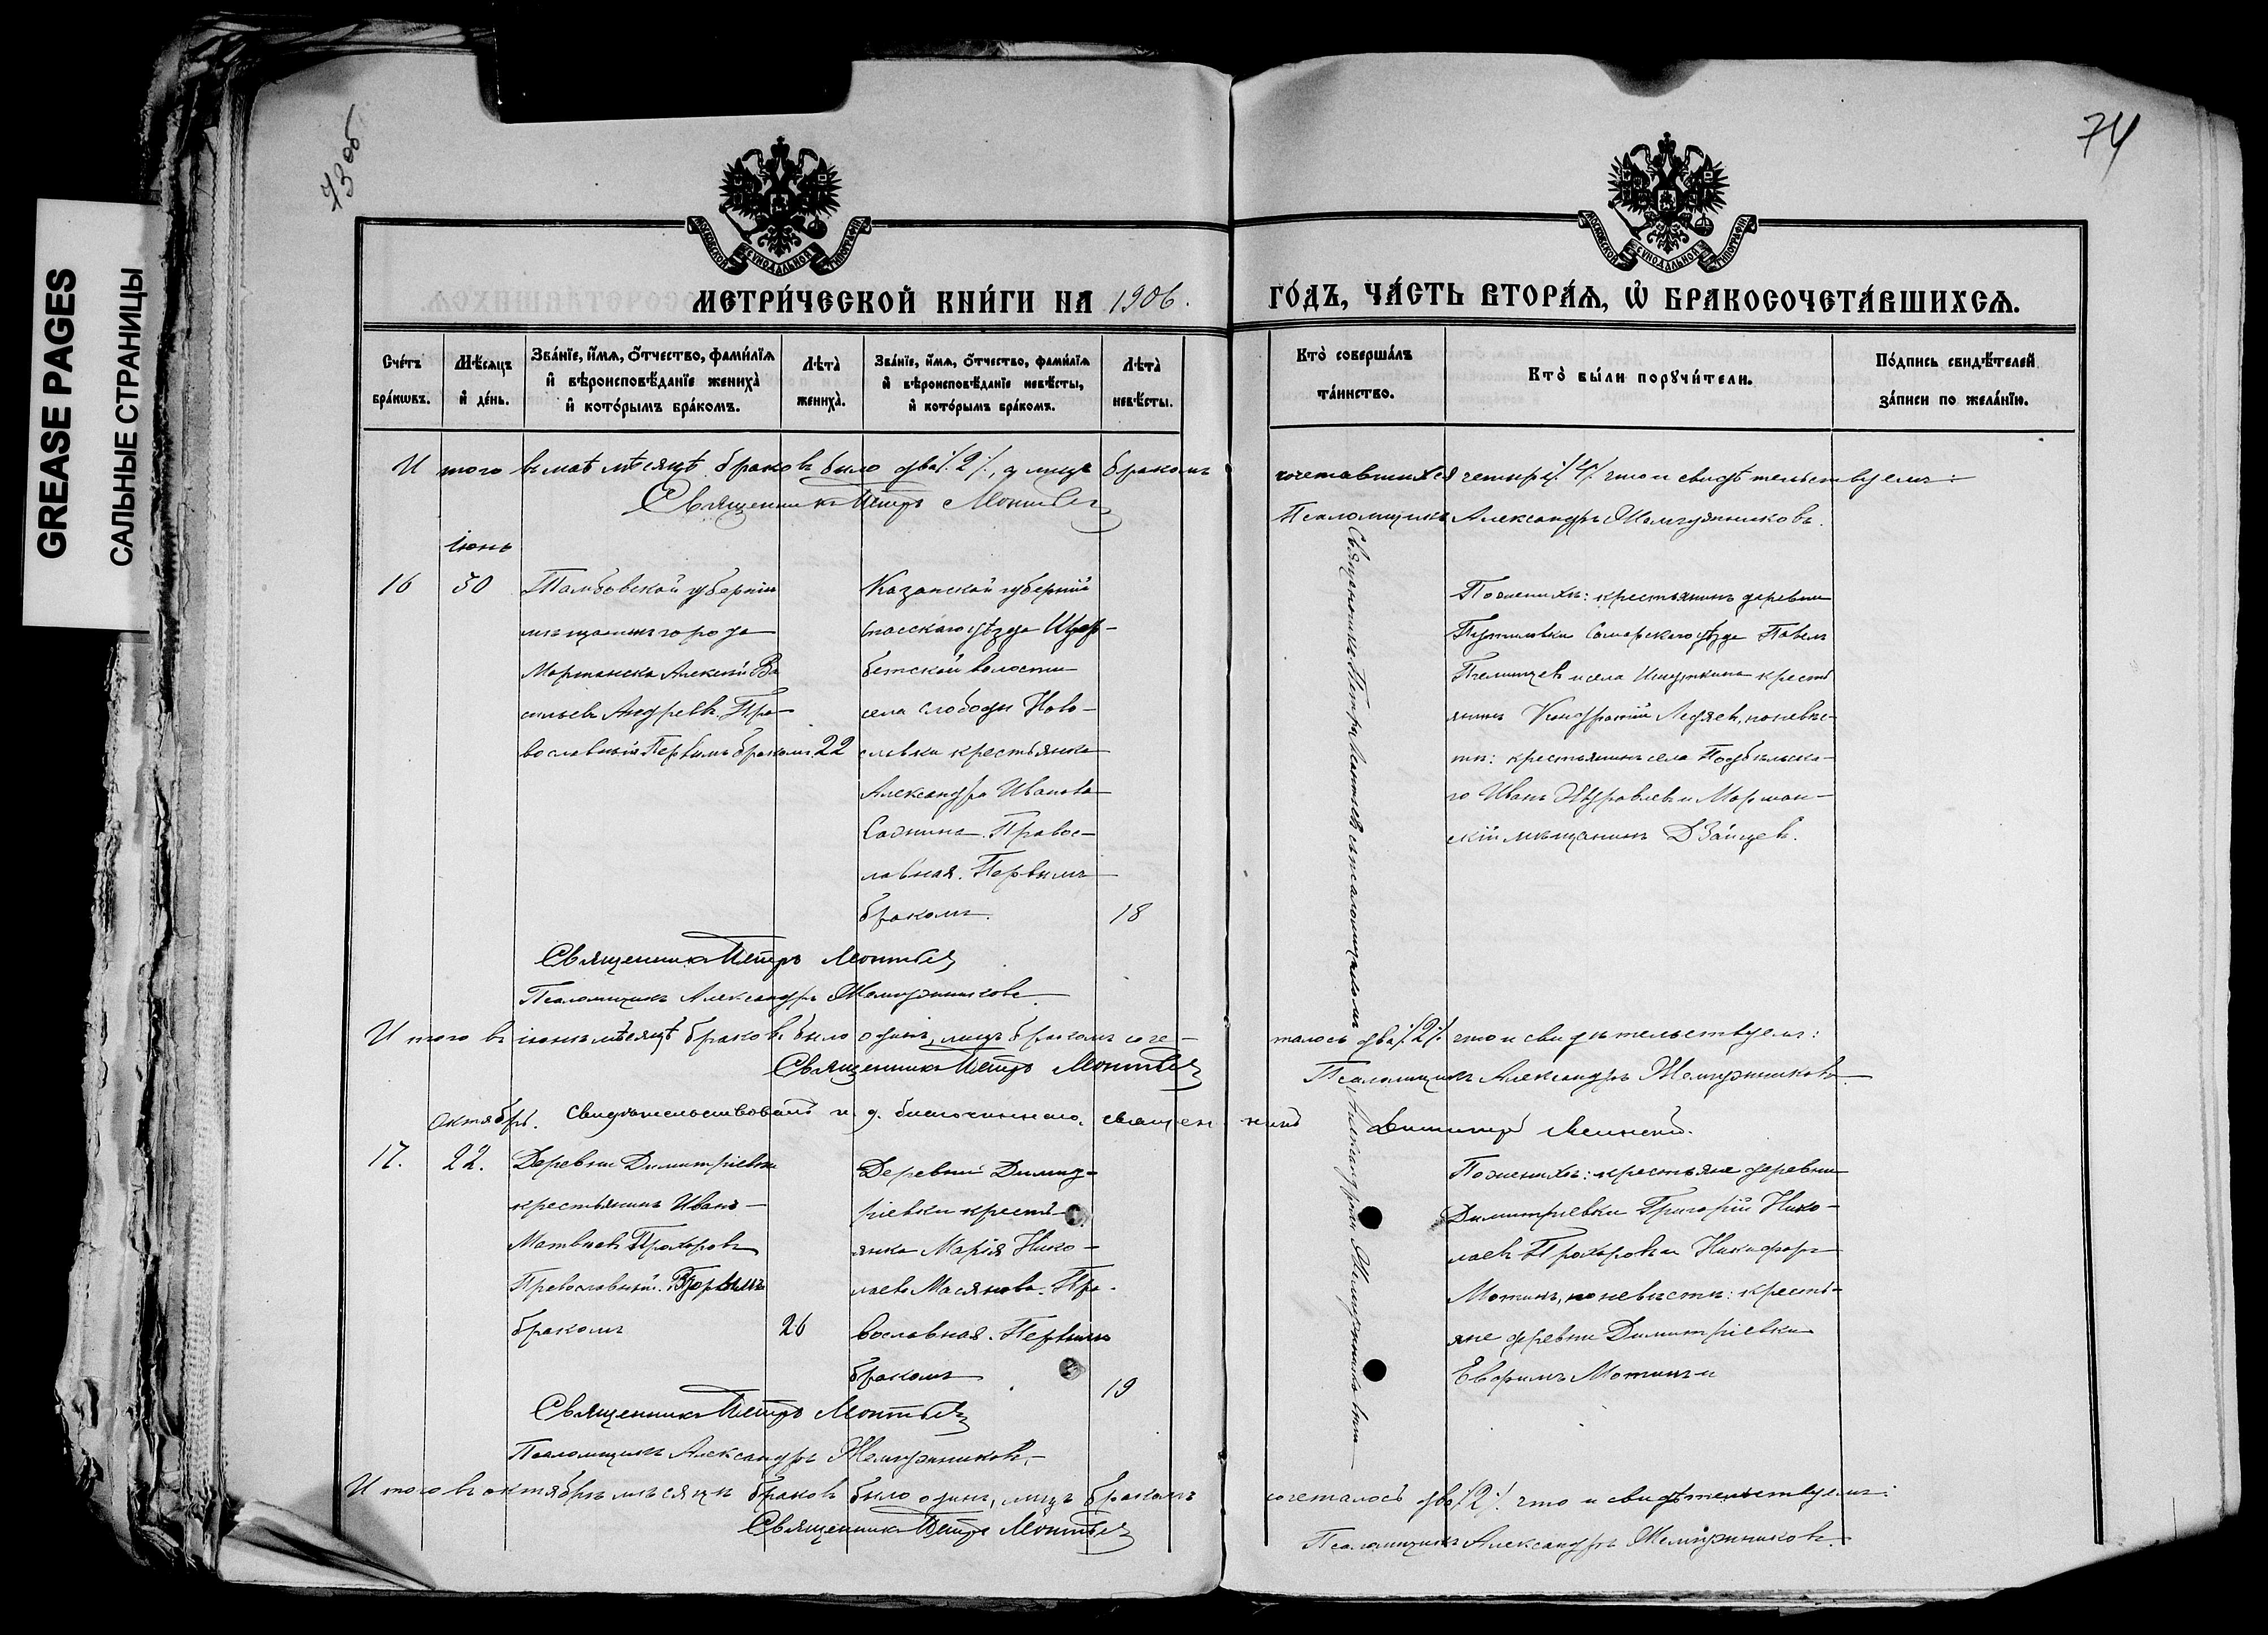 GREASE PAGES
САЛЬНЫЕ СТРАНИЦЫ
73 об
74
МОСКОВСКОЙ СѴНОДАЛЬНОЙ ТИПОГРАФІИ
МОСКОВСКОЙ СѴНОДАЛЬНОЙ ТИПОГРАФІИ
МЕТРИ́ЧЕСКОЙ КНИ́ГИ НА 1906. ГО́ДЪ, ЧА́СТЬ ВТОРА́Я, Ѿ БРАКОСОЧЕТА́ВШИХСЯ.
Сче́тъ бра́кѡвъ.
Мѣ́сяцъ и҆ де́нь.
Зва́нїе, и҆́мѧ, ѻ҆́тчество, фами́лїѧ
и҆ вѣроисповѣ́данїе жениха̀
и҆ кото́рымъ бра́комъ.
Лѣта̀ жениха̀.
Зва́нїе, и҆́мѧ, ѻ҆́тчество, фами́лїѧ
и҆ вѣроисповѣ́данїе невѣ́сты,
и҆ кото́рымъ бра́комъ.
Лѣта̀ невѣ́сты.
Кто̀ соверша́лъ та́инство.
Кто̀ бы́ли порꙋчи́тели.
По́дпись свидѣ́телей за́писи по жела́нїю.
Итого въ маѣ мѣсяцѣ браковъ было два /.2./, а лицъ бракомъ сочетавшихся четыре /.4./ что и свидѣтельствуемъ:
Священникъ Петръ
Псаломщикъ Александръ Жемчужниковъ.
Іюнь
16
30
Тамбовской губерніи
мѣщанинъ города
Моршанска Алексѣй Ва
сильевъ Андреевъ. Пра-
вославный. Первымъ бракомъ.
22
Казанской губерніи
Спасскаго уѣзда Щер-
бетской волости
села слободы Ново-
славки крестьянка
Александра Иванова
Правос-
лавная. Первымъ
бракомъ.
18
Священникъ Петръ
съ псаломщикомъ
Александромъ Жемчужниковымъ
По женихѣ: крестьянинъ деревни
Путиловки Самарскаго уѣзда Павелъ
и села Ишуткина кресть
янинъ Кондратій Ледяевъ, по невѣс-
тѣ: крестьянинъ села Подбѣльска-
го Иванъ Журавлевъ и Моршан-
скій мѣщанинъ Д Зайцевъ.
Священникъ Петръ
Псаломщикъ Александръ Жемчужниковъ
Итого въ іюнѣ мѣсяцѣ браковъ было одинъ, лицъ бракомъ соче-талось два /.2./ что и свидѣтельствуемъ:
Священникъ Петръ
Псаломщикъ Александръ Жемчужниковъ
Свидѣтельствовалъ и. д. благочиннаго, священникъ Димитрій
Октябрь.
17.
22.
Деревни Димитріевки
крестьянинъ Иванъ
Матвѣевъ Прохоровъ
Православный. Вторымъ
бракомъ
26
Деревни Димит-
ріевки кресть-
янка Марія Нико-
лаева Масякова. Пра-
вославная. Первымъ
бракомъ
19
По женихѣ: крестьяне деревни
Димитріевки Григорій Нико-
лаевъ Прохоровъ и Никифоръ
Мотинъ, по невѣстѣ: кресть-
яне деревни Димитріевки
Ефремъ Мотинъ и
Священникъ Петръ
Псаломщикъ Александръ Жемчужниковъ.
Итого въ октябрѣ мѣсяцѣ браковъ было одинъ, лицъ бракомъ сочеталось два /.2./ что и свидѣтельствуемъ:
Священникъ Петръ
Псаломщикъ Александръ Жемчужниковъ.